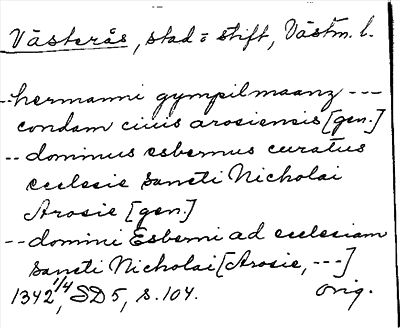 Västerås, stad = stift, Västm. l.
--hermanni gympilmaanz ---
condam ciuis arosiensis [gen.]
-- dominus esbernus curatus
ecclesie Sancti Nicholai
Arosie [gen.]
-- domini Esberni ad ecclesiam
Sancti Nicholai [Arosie, ---]
1342 1/4, SD 5, s. 104. Orig.